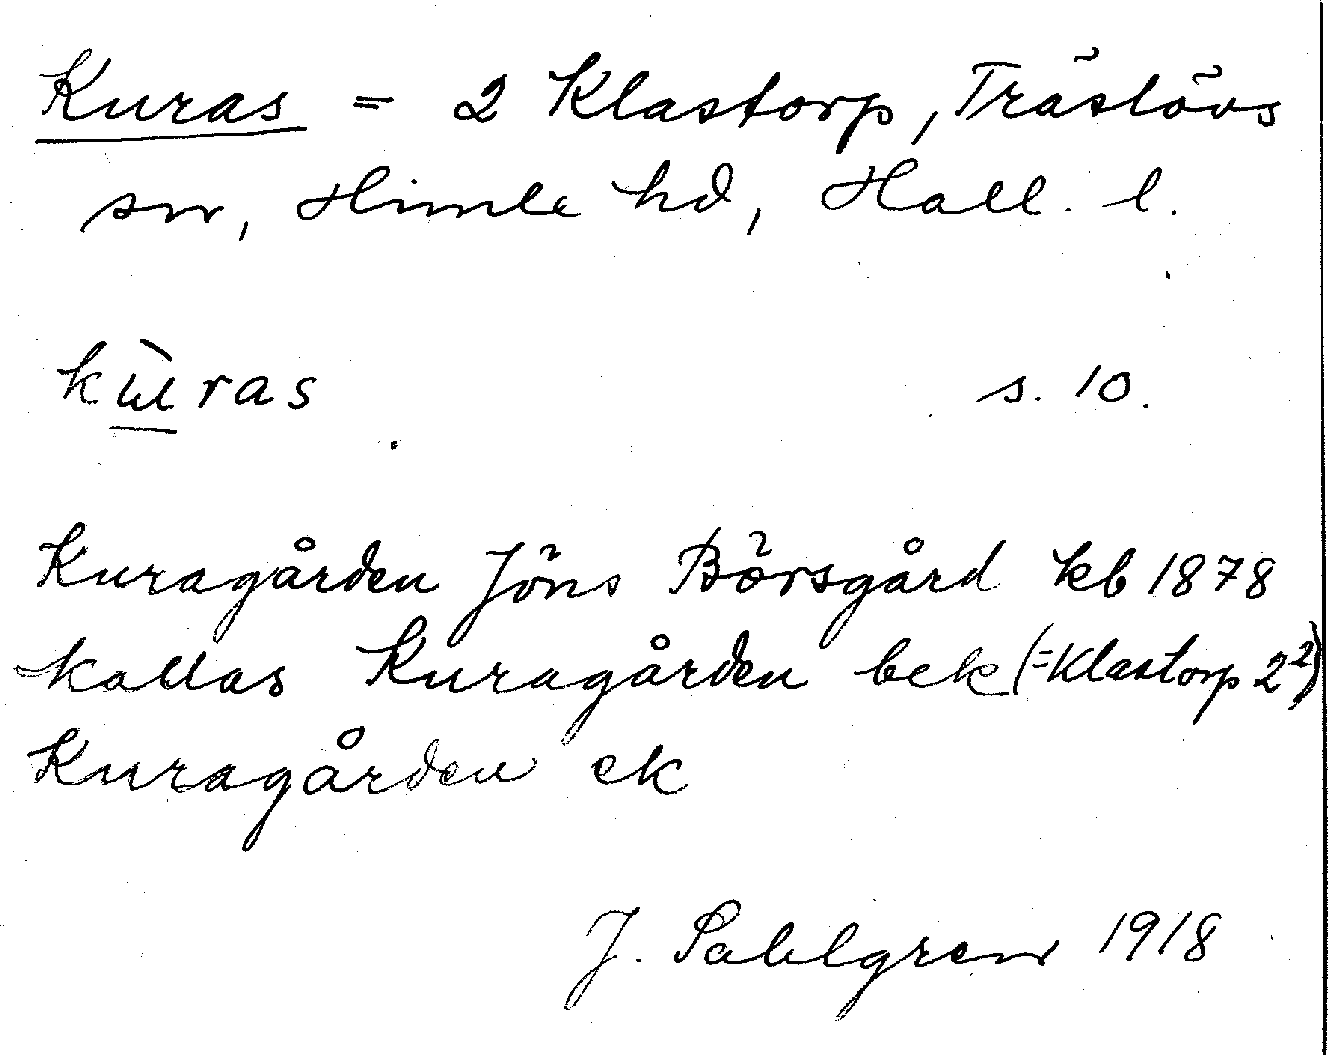 Kuras = 2 Klastorp, Träslövs
sn, Himle hd, Hall. l.
kɯ̀ras s. 10.
Kuragården Jöns Börsgård kb 1878
kallas Kuragården bek (=Klastorp 2²)
Kuragården ek
J. Sahlgren 1918